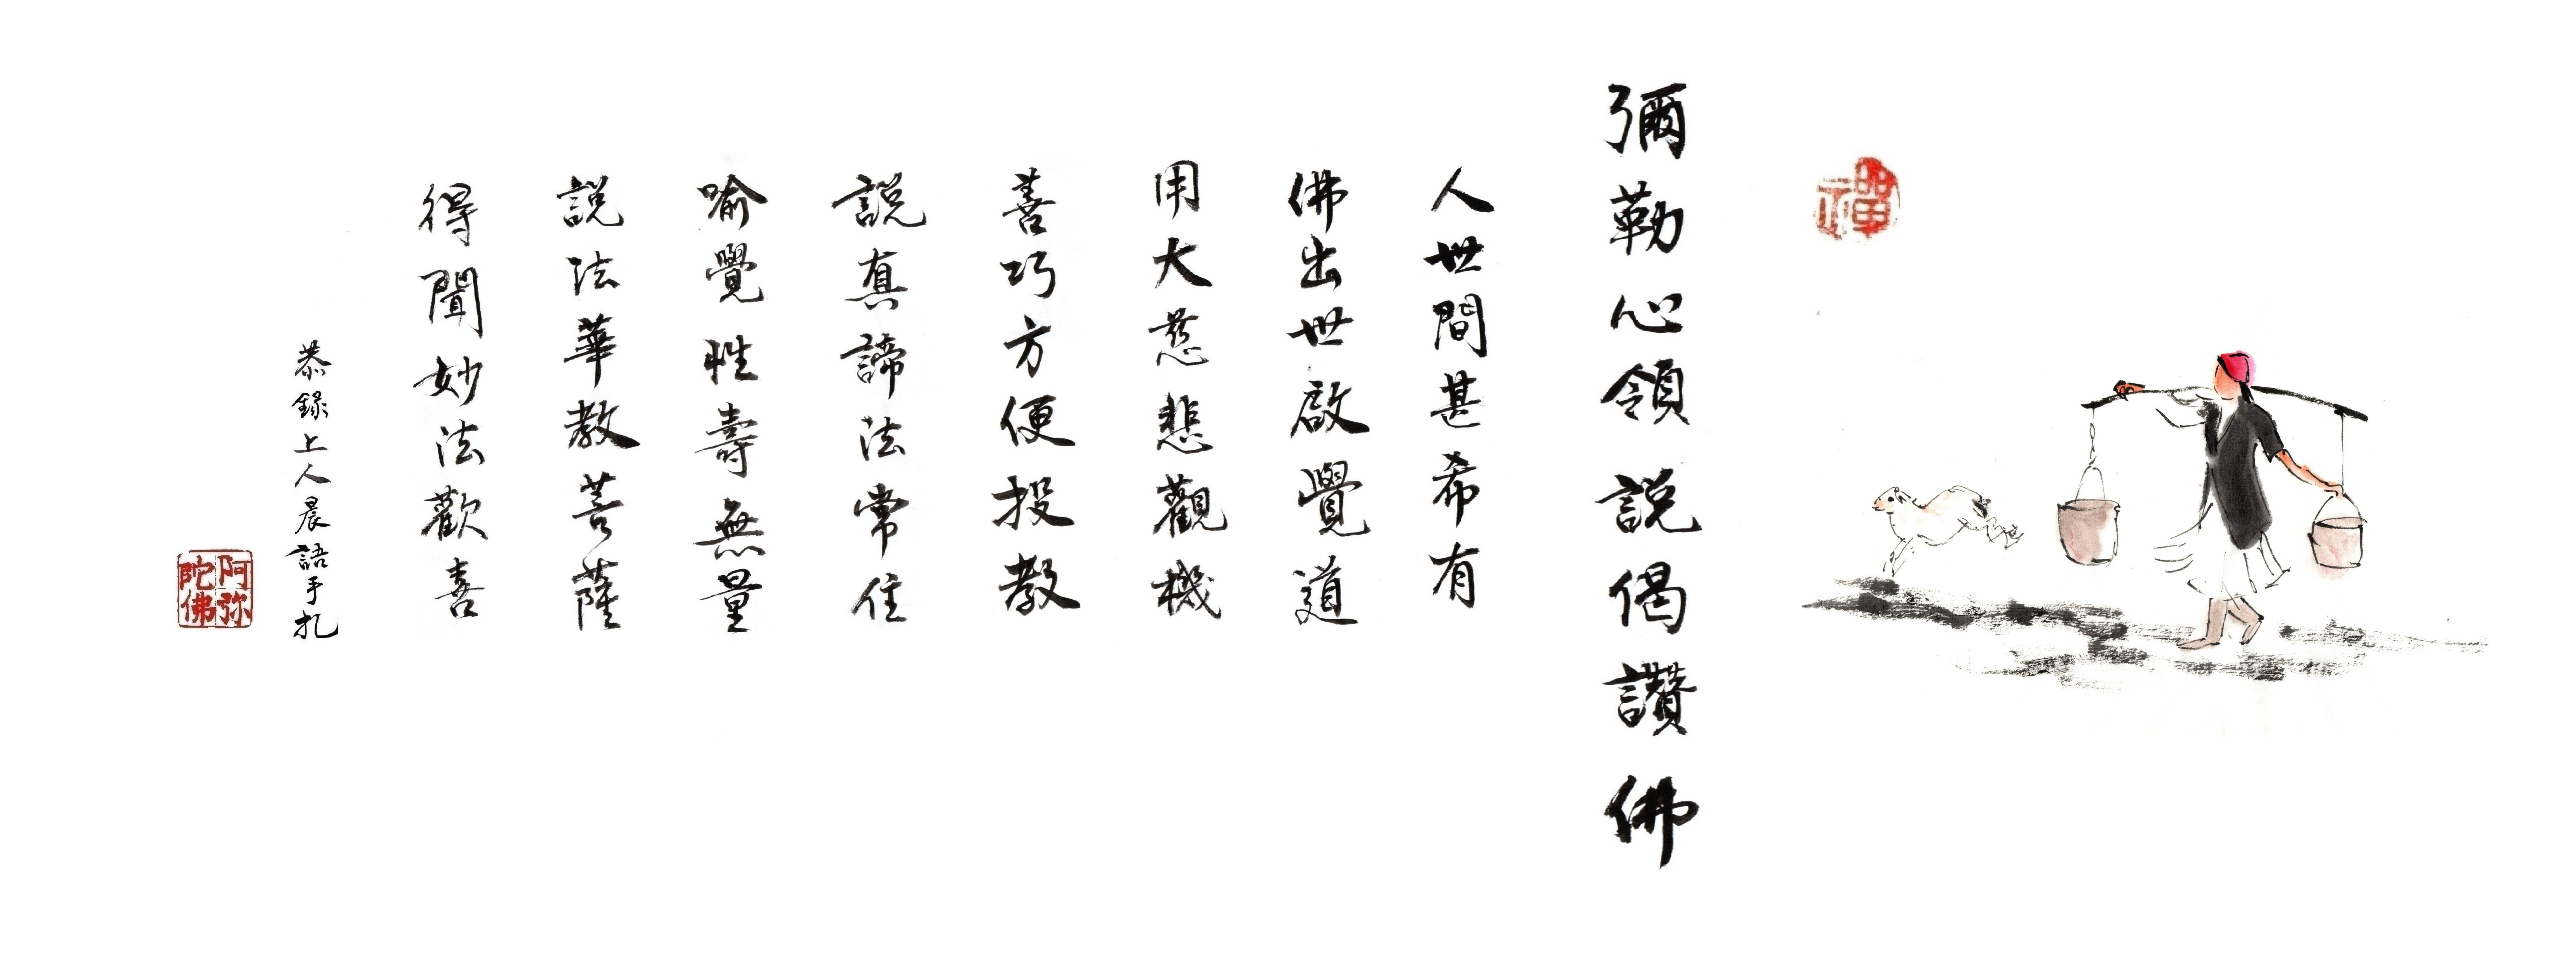 禪
彌勒心領說偈讚佛
人世間甚希有
佛出世啟覺道
用大慈悲觀機
善巧方便投教
說真諦法常住
喻覺性壽無量
說法華教菩薩
得聞妙法歡喜
恭錄上人晨語手札
阿弥陀佛